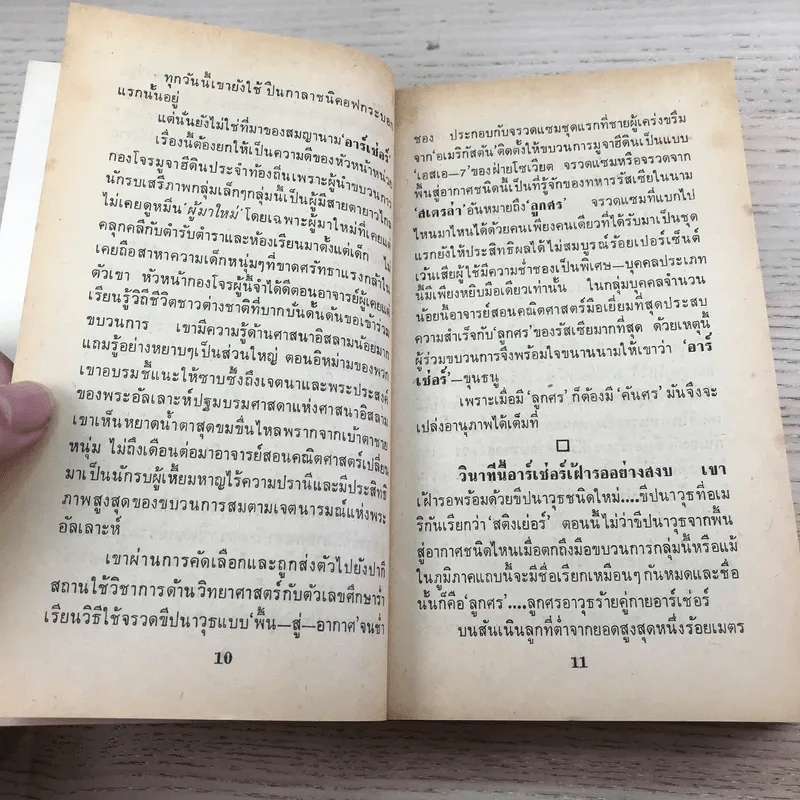 ทุกวันนี้เขายังใช้ ปืนกาลาชนิคอฟกระบอก
แรกนั้นอยู่
แต่นั่นยังไม่ใช่ที่มาของสมญานาม 'อาร์เช่อร์'
เรื่องนี้ต้องยกให้เป็นความดีของหัวหน้าหน่วย
กองโจรมูจาฮีดินประจำท้องถิ่นเพราะผู้นำขบวนการ
นักรบเสรีภาพกลุ่มเล็กๆกลุ่มนี้เป็นผู้มีสายตายาวไกล
ไม่เคยดูหมิ่น 'ผู้มาใหม่' โดยเฉพาะผู้มาใหม่ที่เคยแต่
คลุกคลีกับตำรับตำราและห้องเรียนมาตั้งแต่เด็ก ไม่
เคยถือสาหาความเด็กหนุ่มๆที่ขาดศรัทธาแรงกล้าใน
ตัวเขา หัวหน้ากองโจรผู้นี้จำได้ดีตอนอาจารย์ผู้เคยแต่
เรียนรู้วิถีชีวิตชาวต่างชาติที่บากบั่นดั้นด้นขอเข้าร่วม
ขบวนการ เขามีความรู้ด้านศาสนาอิสลามน้อยมาก
แถมรู้อย่างหยาบๆเป็นส่วนใหญ่ ตอนอิหม่ามของพวก
เขาอบรมชี้แนะให้ซาบซึ้งถึงเจตนาและพระประสงค์
ของพระอัลเลาะห์ปฐมบรมศาสดาแห่งศาสนาอิสลาม
เขาเห็นหยาดน้ำตาสุดขมขื่นไหลพรากจากเบ้าตาชาย
หนุ่ม ไม่ถึงเดือนต่อมาอาจารย์สอนคณิตศาสตร์เปลี่ยน
มาเป็นนักรบผู้เหี้ยมหาญไร้ความปรานีและมีประสิทธิ
ภาพสูงสุดของขบวนการสมตามเจตนารมณ์แห่งพระ
อัลเลาะห์
เขาผ่านการคัดเลือกและถูกส่งตัวไปยังปากี
สถานใช้วิชาการด้านวิทยาศาสตร์กับตัวเลขศึกษาร่ำ
เรียนวิธีใช้จรวดขีปนาวุธแบบ 'พื้น—สู่—อากาศ' จนช่ำ
10
ชอง ประกอบกับจรวดแซมชุดแรกที่ชายผู้เคร่งขรึม
จาก 'อเมริกัสตัน' ติดตั้งให้ขบวนการมูจาฮีดินเป็นแบบ
'เอสเอ—7' ของฝ่ายโซเวียต จรวดแซมหรือจรวดจาก
พื้นสู่อากาศชนิดนี้เป็นที่รู้จักของทหารรัสเซียในนาม
'สเตรล่า' อันหมายถึง 'ลูกศร' จรวดแซมที่แบกไป
ไหนมาไหนได้ด้วยคนเพียงคนเดียวที่ได้รับมาเป็นชุด
แรกยังให้ประสิทธิผลได้ไม่สมบูรณ์ร้อยเปอร์เซ็นต์
เว้นเสียผู้ใช้มีความช่ำชองเป็นพิเศษ—บุคคลประเภท
นี้มีเพียงหยิบมือเดียวเท่านั้น ในกลุ่มบุคคลจำนวน
น้อยนี้อาจารย์สอนคณิตศาสตร์มือเยี่ยมที่สุดประสบ
ความสำเร็จกับ 'ลูกศร' ของรัสเซียมากที่สุด ด้วยเหตุนี้
ผู้ร่วมขบวนการจึงพร้อมใจขนานนามให้เขาว่า 'อาร์
เช่อร์'—ขุนธนู
เพราะเมื่อมี 'ลูกศร' ก็ต้องมี 'คันศร' มันจึงจะ
เปล่งอานุภาพได้เต็มที่
วินาทีนี้อาร์เช่อร์เฝ้ารออย่างสงบ เขา
เฝ้ารอพร้อมด้วยขีปนาวุธชนิดใหม่....ขีปนาวุธที่อเม
ริกันเรียกว่า 'สติงเย่อร์' ตอนนี้ไม่ว่าขีปนาวุธจากพื้น
สู่อากาศชนิดไหนเมื่อตกถึงมือขบวนการกลุ่มนี้หรือแม้
ในภูมิภาคแถบนี้จะมีชื่อเรียกเหมือนๆ กันหมดและชื่อ
นั้นก็คือ 'ลูกศร'....ลูกศรอาวุธร้ายคู่กายอาร์เช่อร์
บนสันเนินลูกที่ต่ำจากยอดสูงสุดหนึ่งร้อยเมตร
11